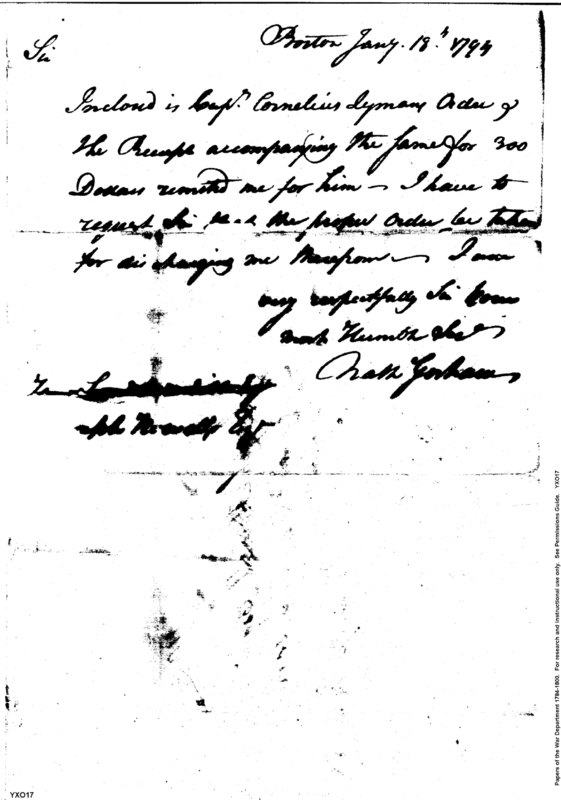 Boston Jany. 18th. 1794
Sir
Inclosd is Capt. Cornelius Lymans Order &
the Receipt accompanying the same for 300
Dollars remitted me for him — I have to
request Sir that the proper Order be taken
for discharging me therefrom — I am
very respectfully Sir your
most Humble Servt
Nath Gorham
Joseph Howell Esqr
Papers of the War Department 1784-1800. For research and instructional use only. See Permissions Guide. YXO17
YXO17